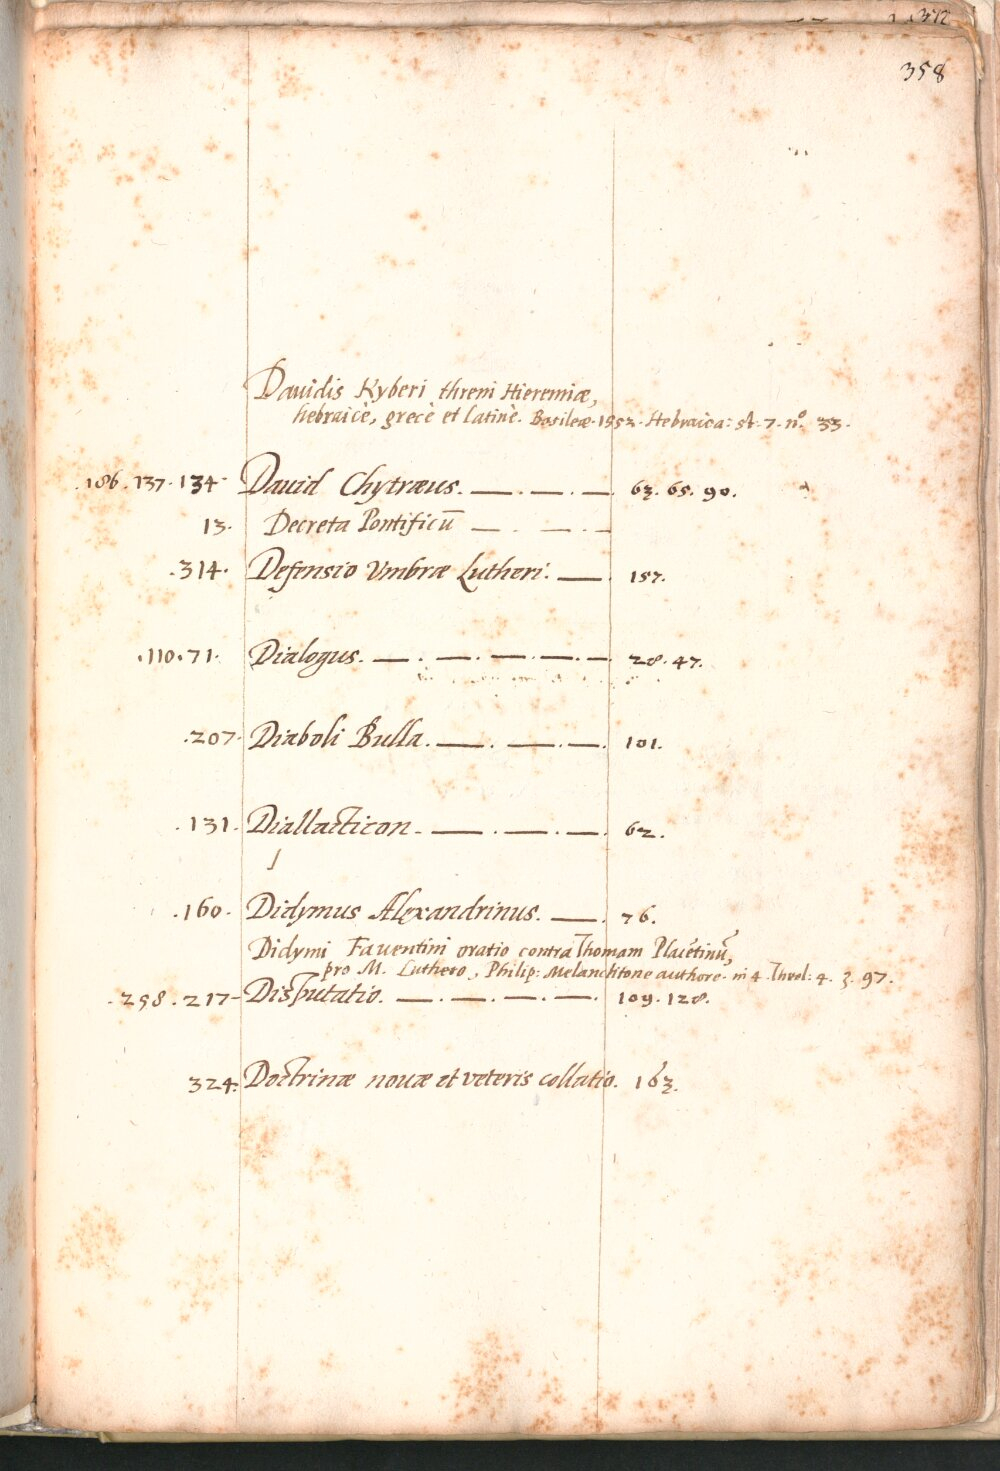 372
358
Dauidis Kyberi threni Hieremiæ,
hebraicè, grecè et Latinè. Basileæ. 1552. Hebraica: st. 7. nº. 33.
.186.137.134 Dauid Chytræus. —.—.—. 63. 65. 90.
13. Decreta Pontificū —.—.—
.314. Defensio Vmbræ Lutheri. —. 157.
.110.71. Dialogus. —.—.—.—.—. 28. 47.
.207. Diaboli Bulla. —.—.—. 101.
.131. Diallacticon. —.—.—. 62.
.160. Didymus Alexandrinus. —. 76.
Didymi Fauentini oratio contra Thomam Placētinū,
pro M. Luthero, Philip: Melanchtone authore. in 4. Theol: 4. 3. 97.
.258.217 Disputatio. —.—.—.—. 109. 128.
324. Doctrinæ nouæ et veteris collatio. 163.